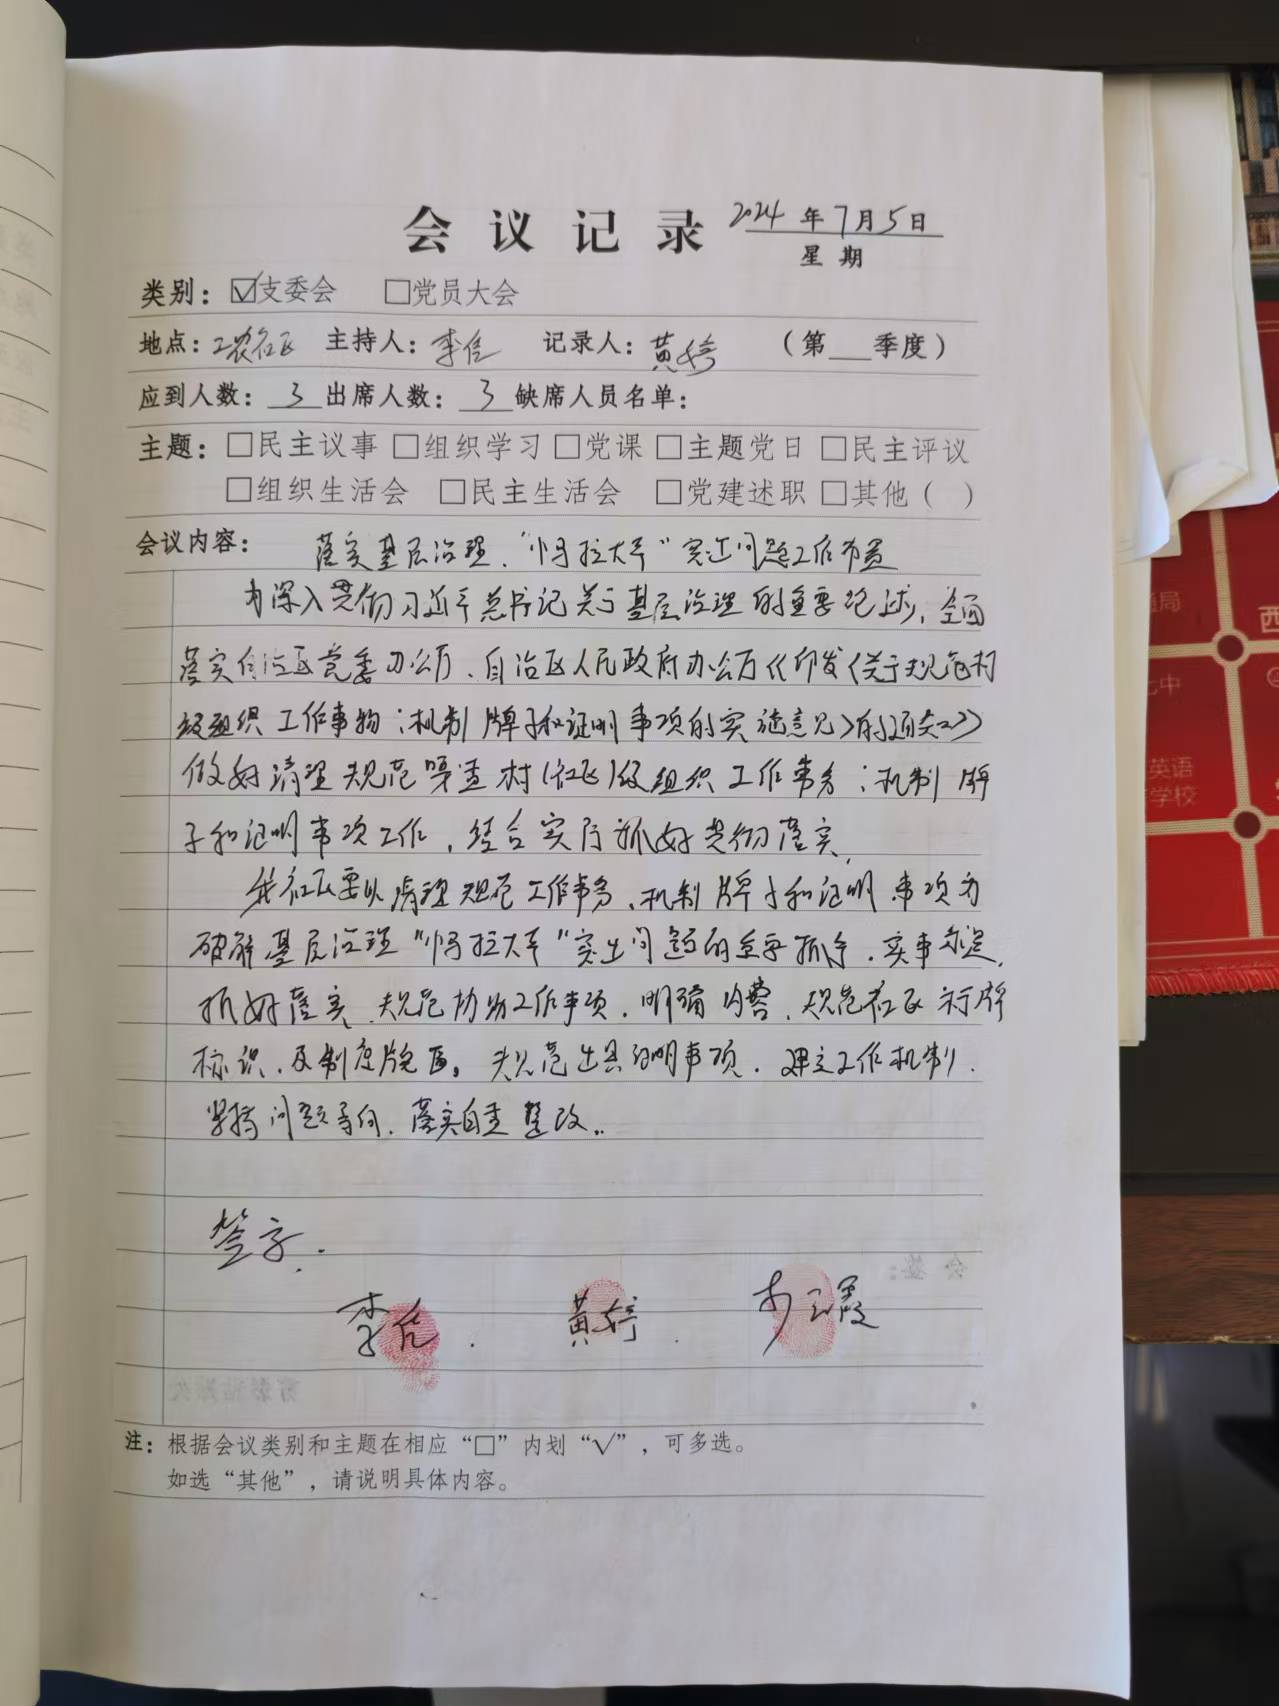 会议记录 2024年7月5日
星期
类别：☑支委会 □党员大会
地点：工农社区 主持人：李佳 记录人：黄婷 （第___季度）
应到人数：3 出席人数：3 缺席人员名单：
主题：□民主议事 □组织学习 □党课 □主题党日 □民主评议
□组织生活会 □民主生活会 □党建述职 □其他（ ）
会议内容： 落实基层治理，“小马拉大车”突出问题工作布置
为深入贯彻习近平总书记关于基层治理的重要论述，全面
落实自治区党委办公厅、自治区人民政府办公厅《印发〈关于规范村
级组织工作事物；机制牌子和证明事项的实施意见〉的通知》
做好清理规范 村（社区）级组织工作事务；机制牌
子和证明事项工作，结合实际抓好贯彻落实，
我社区要以清理规范工作事务、机制牌子和证明事项为
破解基层治理“小马拉大车”突出问题的重要抓手，实事求是，
抓好落实，规范协助工作事项，明确内容，规范社区 牌
标识，及制度 。规范出具证明事项，建立工作机制，
坚持问题导向，落实自查整改..
签字.
李佳. 黄婷. 霞
注：根据会议类别和主题在相应“□”内划“√”，可多选。
如选“其他”，请说明具体内容。
英语
学校
七中
西